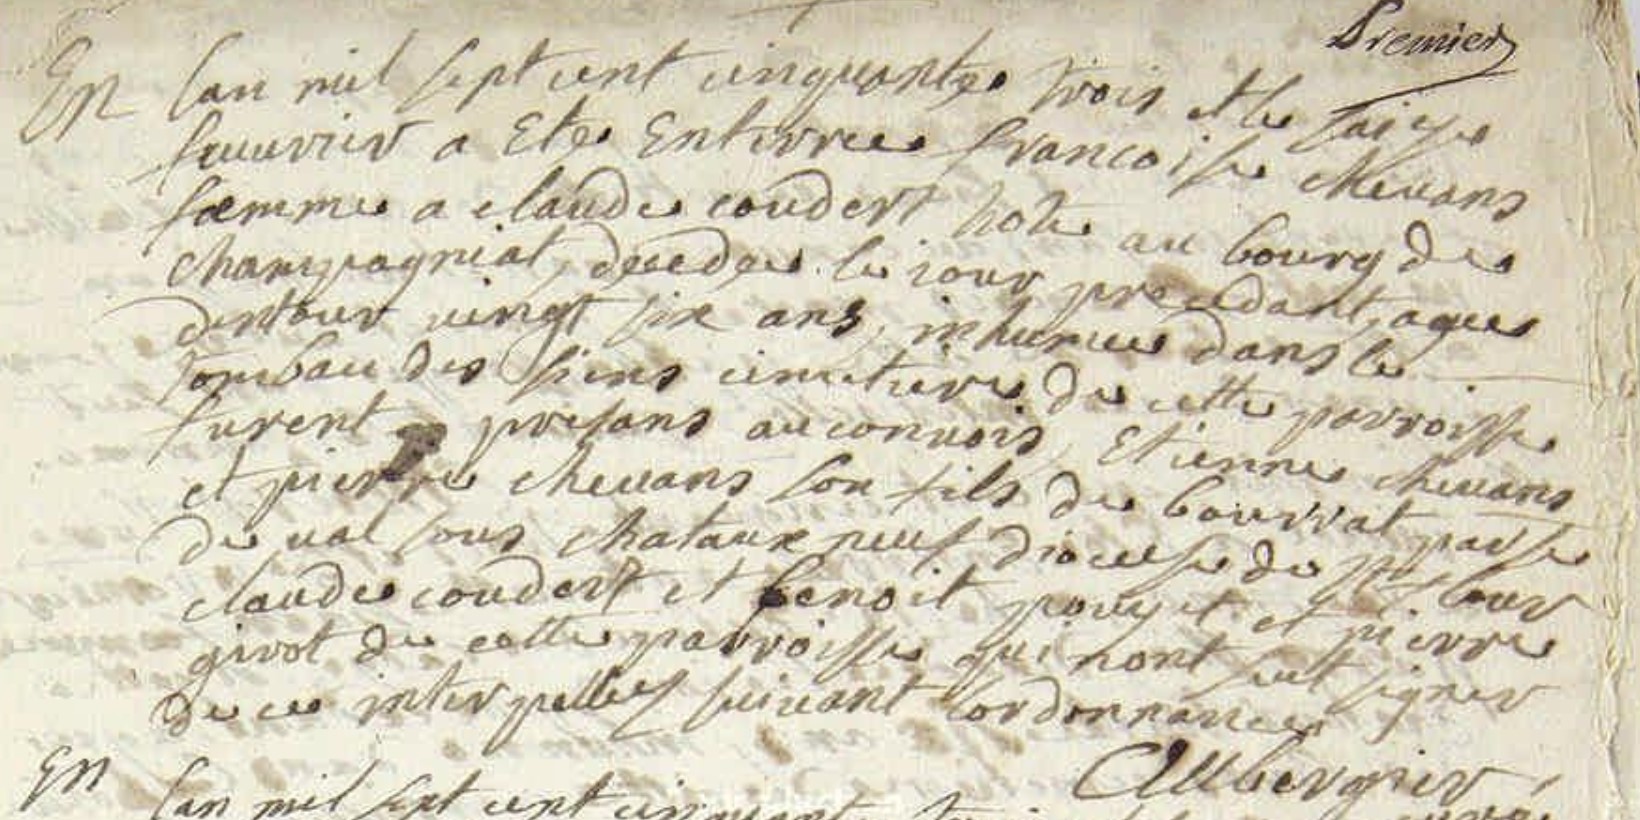 Premier
En lan mil sept cent cinquante trois et le saize
feuvrier a Ete Enterree francoise chevans
fœmme a claude coudert hote au bourg de
champagniat, decedee le jour precedant, agee
dentour vingt six ans, inhumee dans le
tombau des siens cimetiere de cette parroisse
furent presans au convois, Etienne chevans
et pierre chevans son fils de bourrat parse
de val sous chataux neuf diocesse de st flour
claude coudert et benoit pouyet et pierre
girot de cette parroisse qui nont sut signer
de ce interpelles suivant lordonnance
Aubergier
En lan mil sept cent cinquante trois